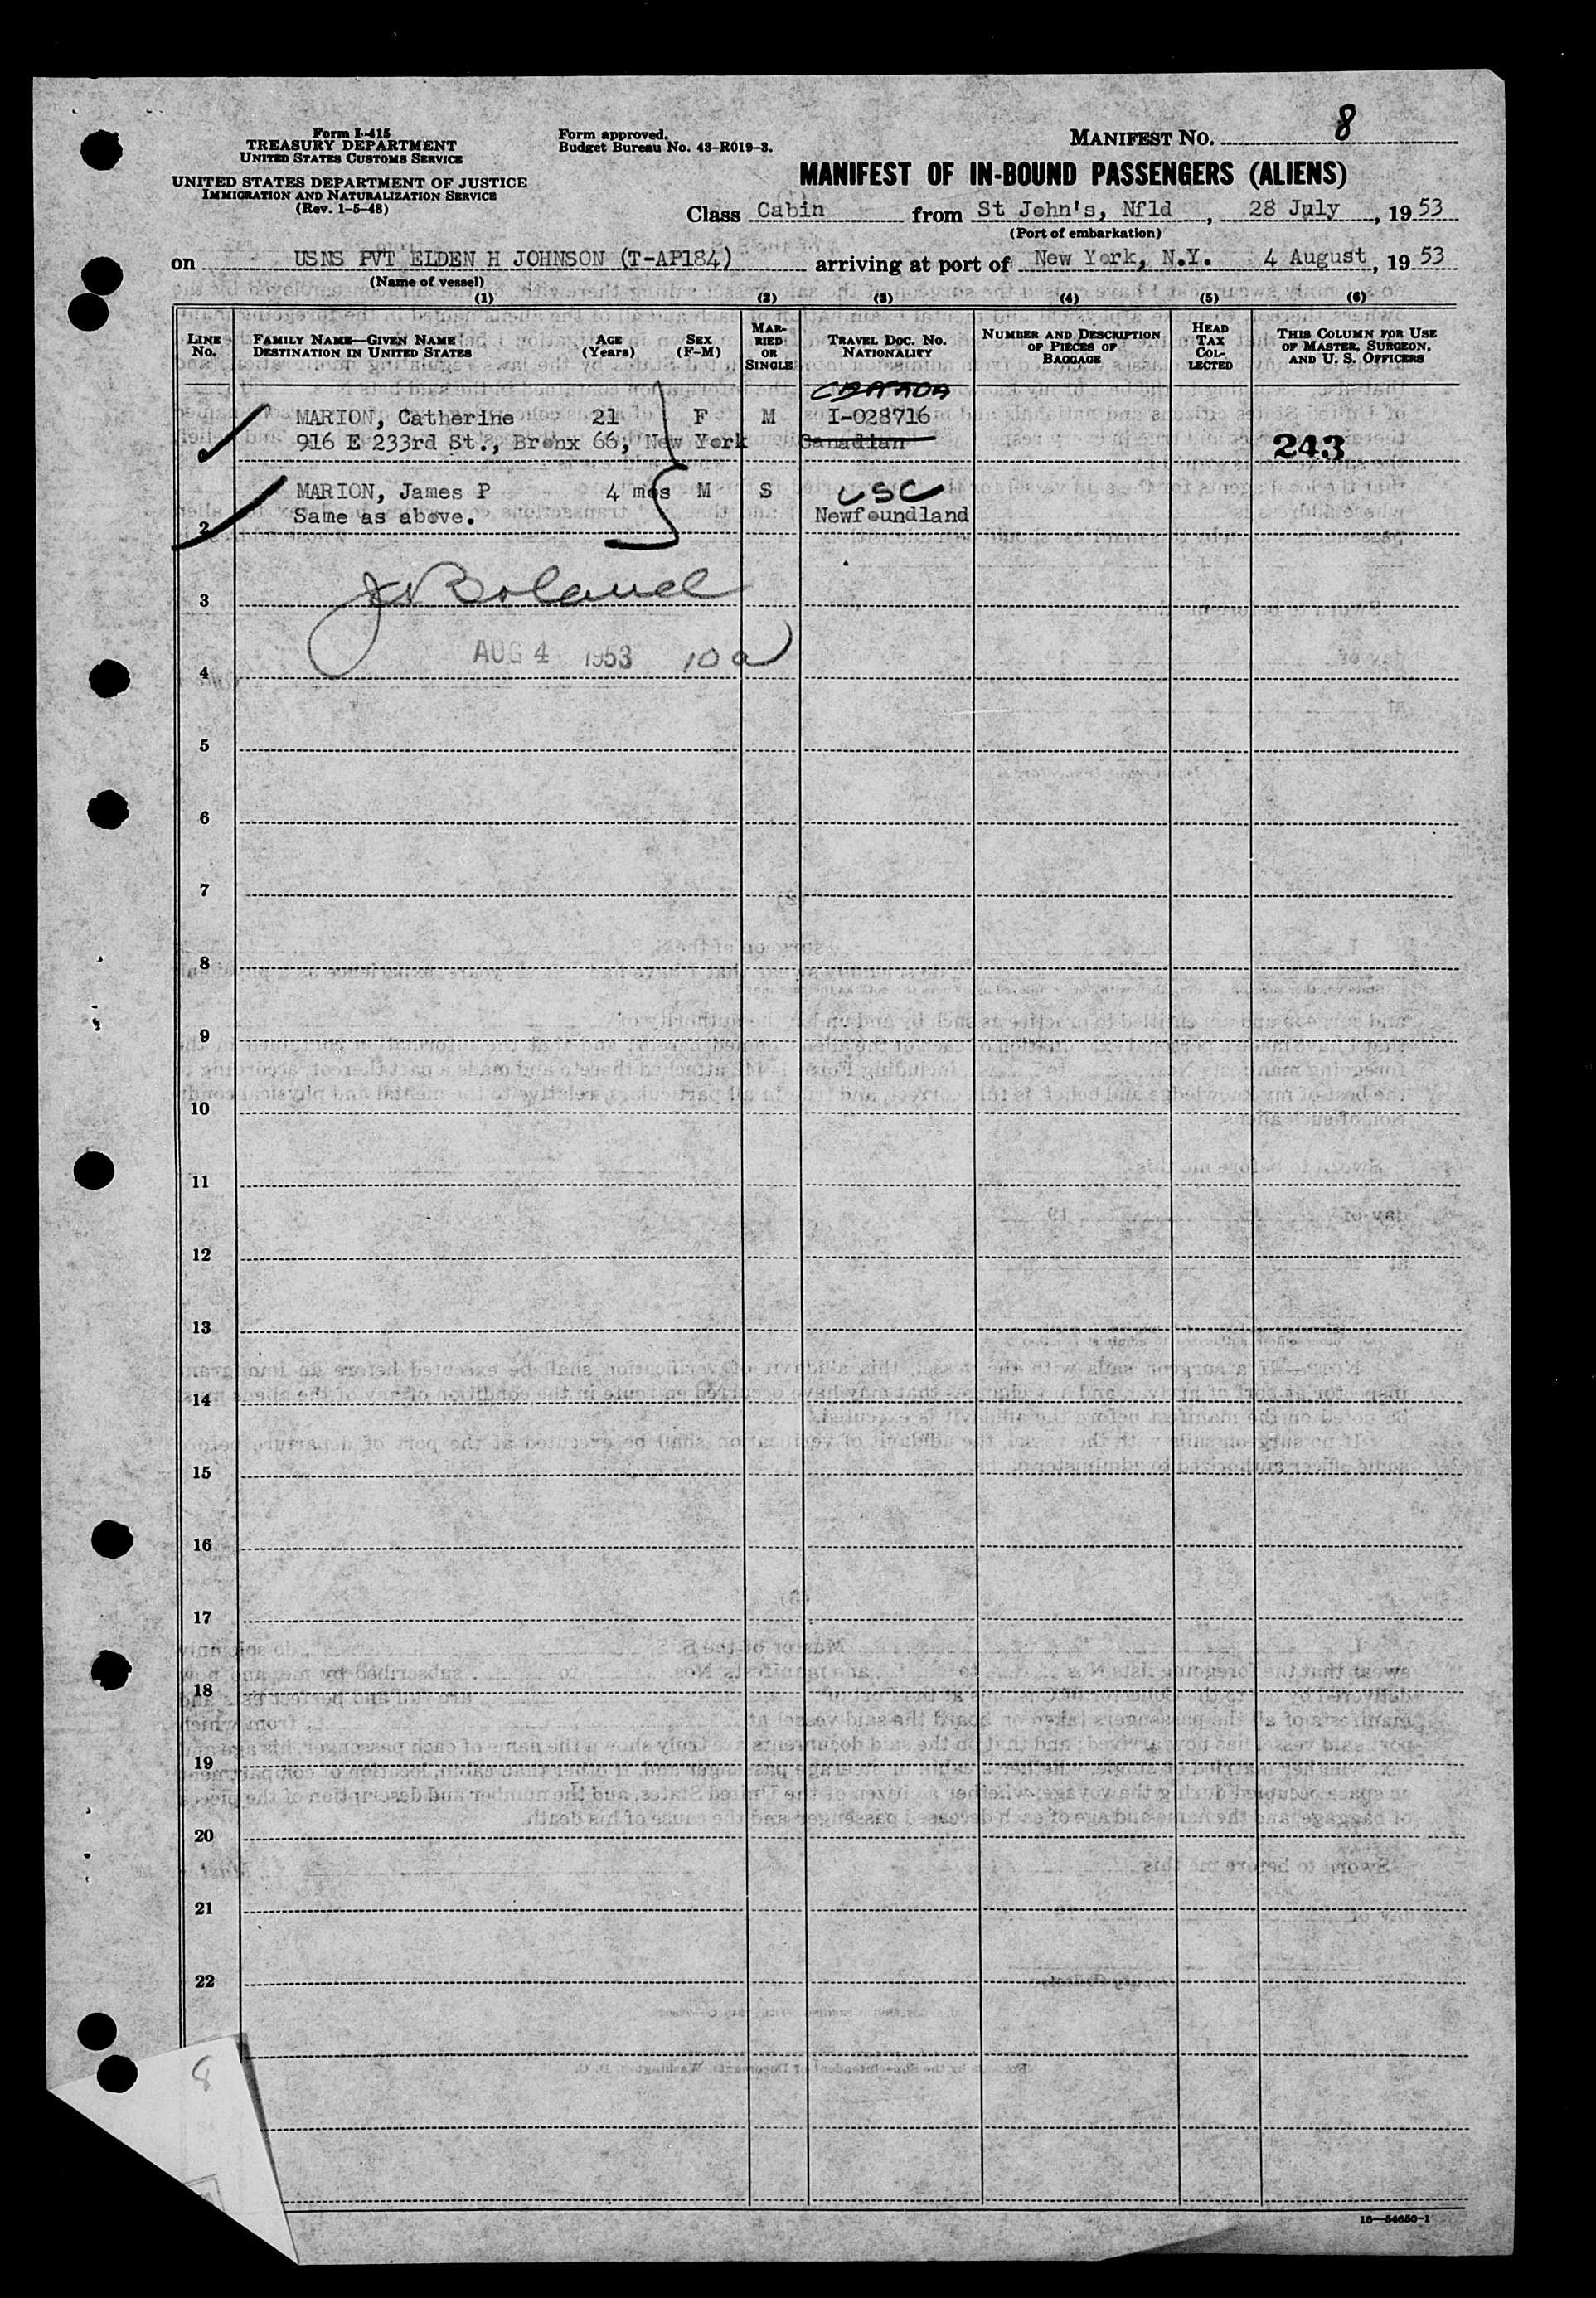 Form I-415
TREASURY DEPARTMENT
UNITED STATES CUSTOMS SERVICE
UNITED STATES DEPARTMENT OF JUSTICE
IMMIGRATION AND NATURALIZATION SERVICE
(Rev. 1-5-48)
Form approved.
Budget Bureau No. 43-R019-3.
MANIFEST NO. 8
MANIFEST OF IN-BOUND PASSENGERS (ALIENS)
Class Cabin from St John's, Nfld, 28 July, 1953
(Port of embarkation)
on USNS PVT ELDEN H JOHNSON (T-AP184) arriving at port of New York, N.Y. 4 August, 1953
(Name of vessel)
(1) (2) (3) (4) (5) (6)
LINE No.
FAMILY NAME—GIVEN NAME
DESTINATION IN UNITED STATES
AGE (Years)
SEX (F-M)
MARRIED OR SINGLE
TRAVEL DOC. NO.
NATIONALITY
NUMBER AND DESCRIPTION OF PIECES OF BAGGAGE
HEAD TAX COLLECTED
THIS COLUMN FOR USE OF MASTER, SURGEON, AND U. S. OFFICERS
CANADA
MARION, Catherine 21 F M I-028716
916 E 233rd St., Bronx 66, New York Canadian 243
MARION, James P 4 mos M S USC
2 Same as above. Newfoundland
3 Boland
4 AUG 4 1953 10 a
5
6
7
8
9
10
11
12
13
14
15
16
17
18
19
20
21
22
8
16—54650-1